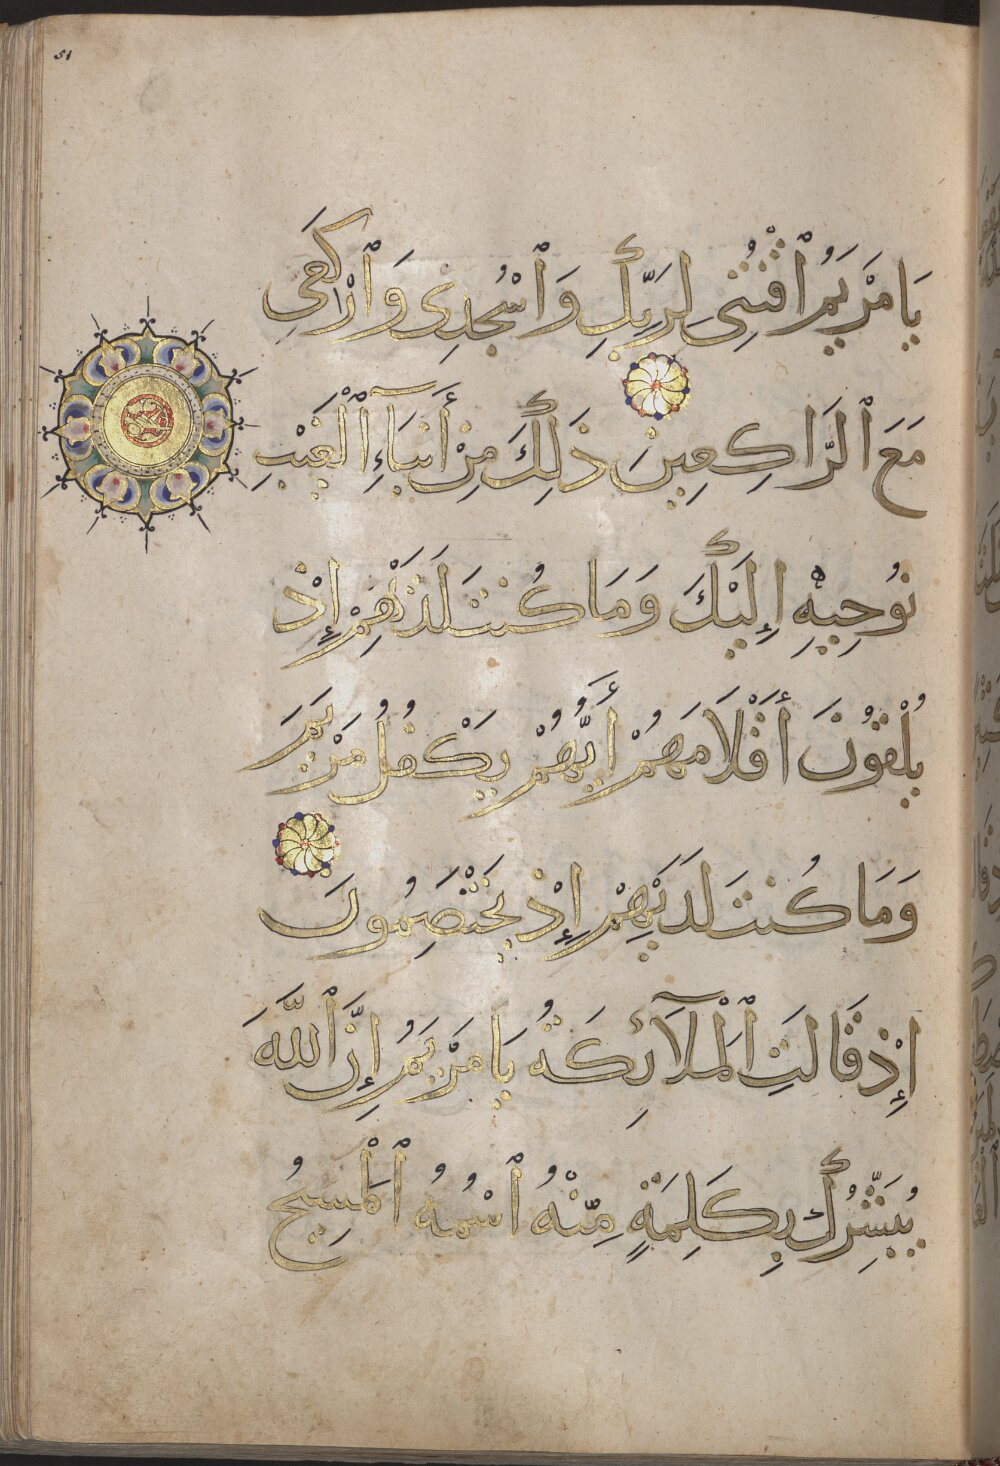 51
يَا مَرْيَمُ ٱقْنُتِى لِرَبِّكِ وَٱسْجُدِى وَٱرْكَعِى
مَعَ ٱلرَّاكِعِينَ ذَٰلِكَ مِنْ أَنبَآءِ ٱلْغَيْبِ
نُوحِيهِ إِلَيْكَ وَمَا كُنتَ لَدَيْهِمْ إِذْ
يُلْقُونَ أَقْلَامَهُمْ أَيُّهُمْ يَكْفُلُ مَرْيَمَ
وَمَا كُنتَ لَدَيْهِمْ إِذْ يَخْتَصِمُونَ
إِذْ قَالَتِ ٱلْمَلَآئِكَةُ يَا مَرْيَمُ إِنَّ ٱللَّهَ
يُبَشِّرُكِ بِكَلِمَةٍ مِّنْهُ ٱسْمُهُ ٱلْمَسِيحُ